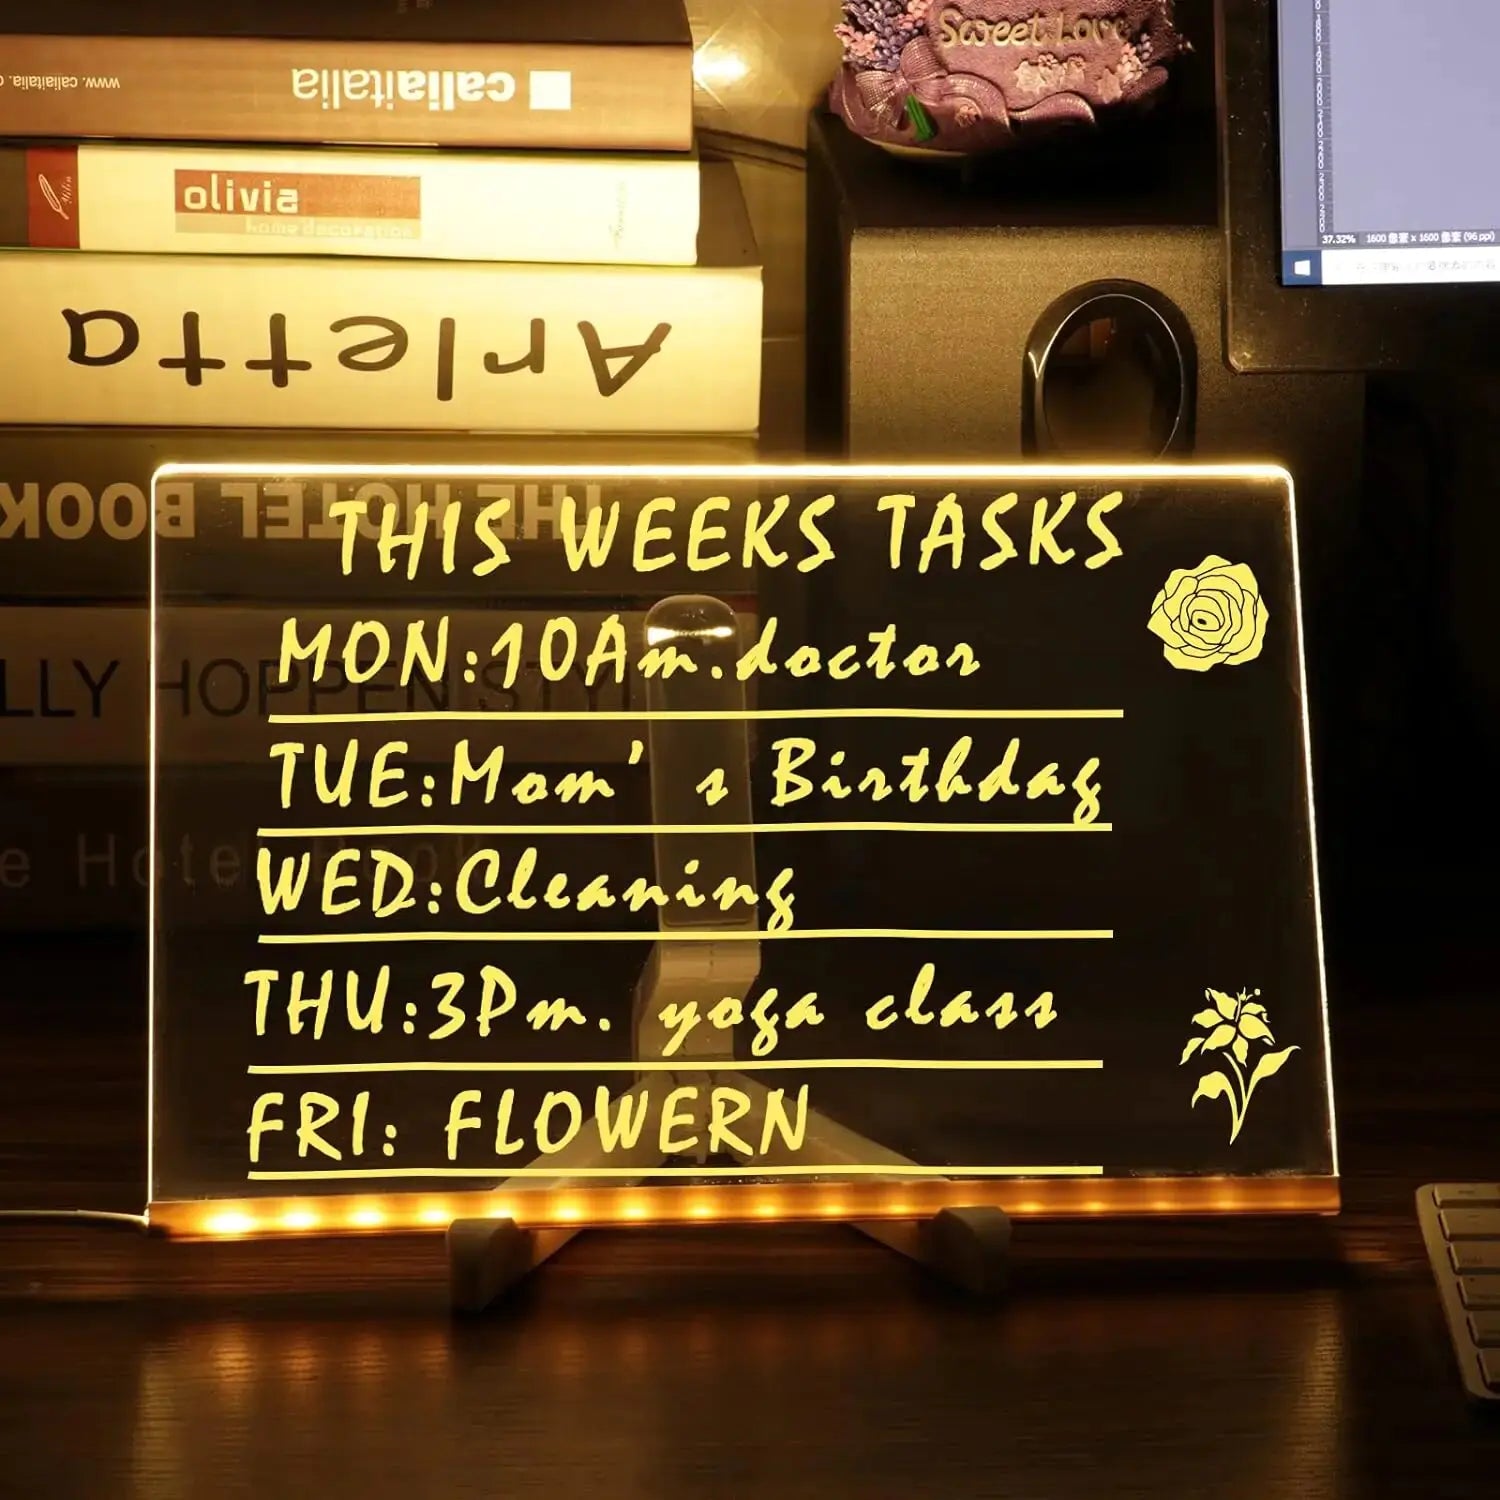 Sweet Love
www.caliaitalia.
caliaitalia
olivia
home decoration
Arletta
THE HOTEL BOOK
LLY HOPPEN STYL
e Hotel Book
37.32% 1600 像素 x 1600 像素 (96 ppi)
THIS WEEKS TASKS
MON:10Am.doctor
TUE:Mom's Birthdag
WED:Cleaning
THU:3Pm. yoga class
FRI: FLOWERN